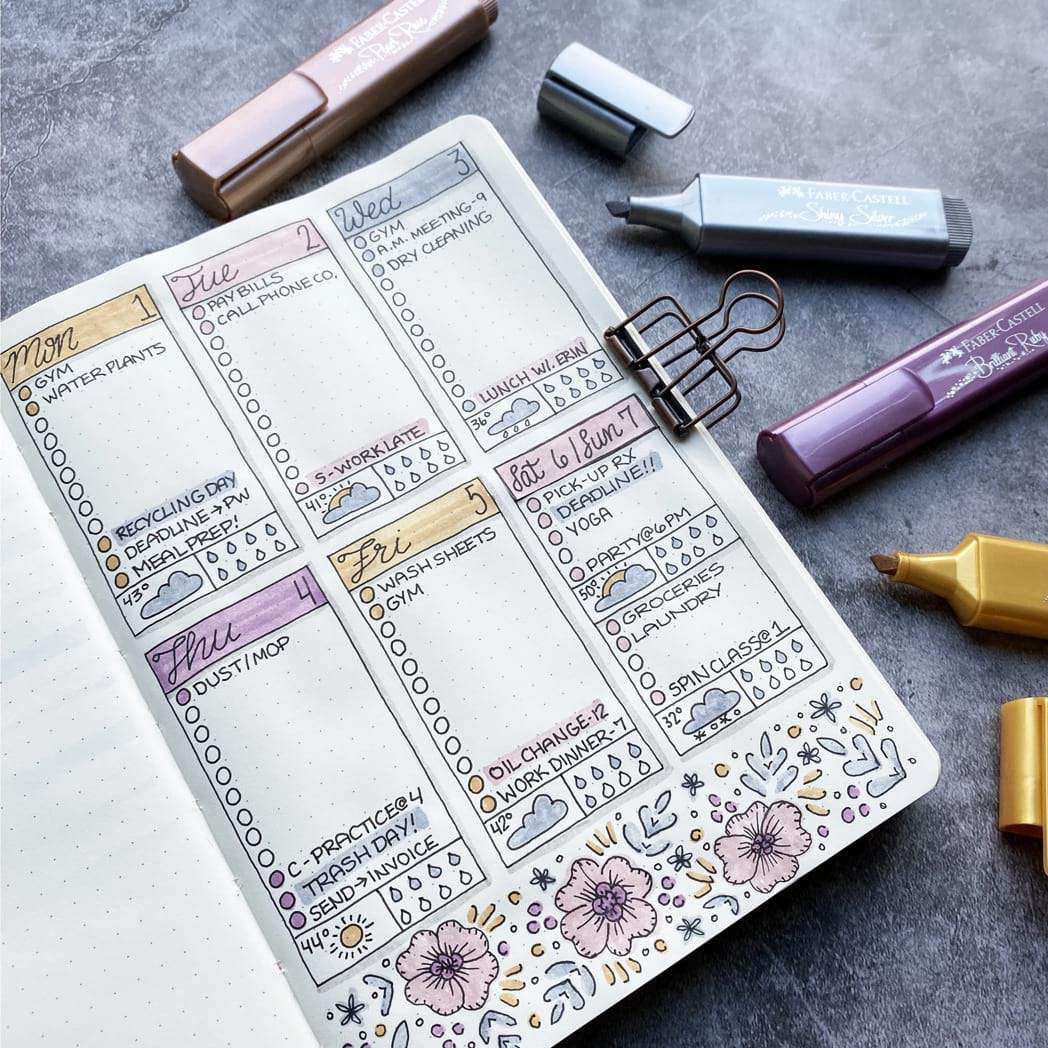 Mon 1
GYM
WATER PLANTS
RECYCLING DAY
DEADLINE → PW
MEAL PREP!
43°
Tue 2
PAY BILLS
CALL PHONE CO.
5-WORK LATE
41°
Wed 3
GYM
A.M. MEETING-9
DRY CLEANING
LUNCH W/. ERIN
36°
Thu 4
DUST/MOP
C-PRACTICE@4
TRASH DAY!
SEND→INVOICE
44°
Fri 5
WASH SHEETS
GYM
OIL CHANGE-12
WORK DINNER-7
42°
Sat 6/Sun 7
PICK-UP RX
DEADLINE!!
YOGA
PARTY@6PM
50°
GROCERIES
LAUNDRY
SPIN CLASS@1
32°
FABER-CASTELL
Pearl Rose
FABER-CASTELL
Shiny Silver
FABER-CASTELL
Brilliant Ruby